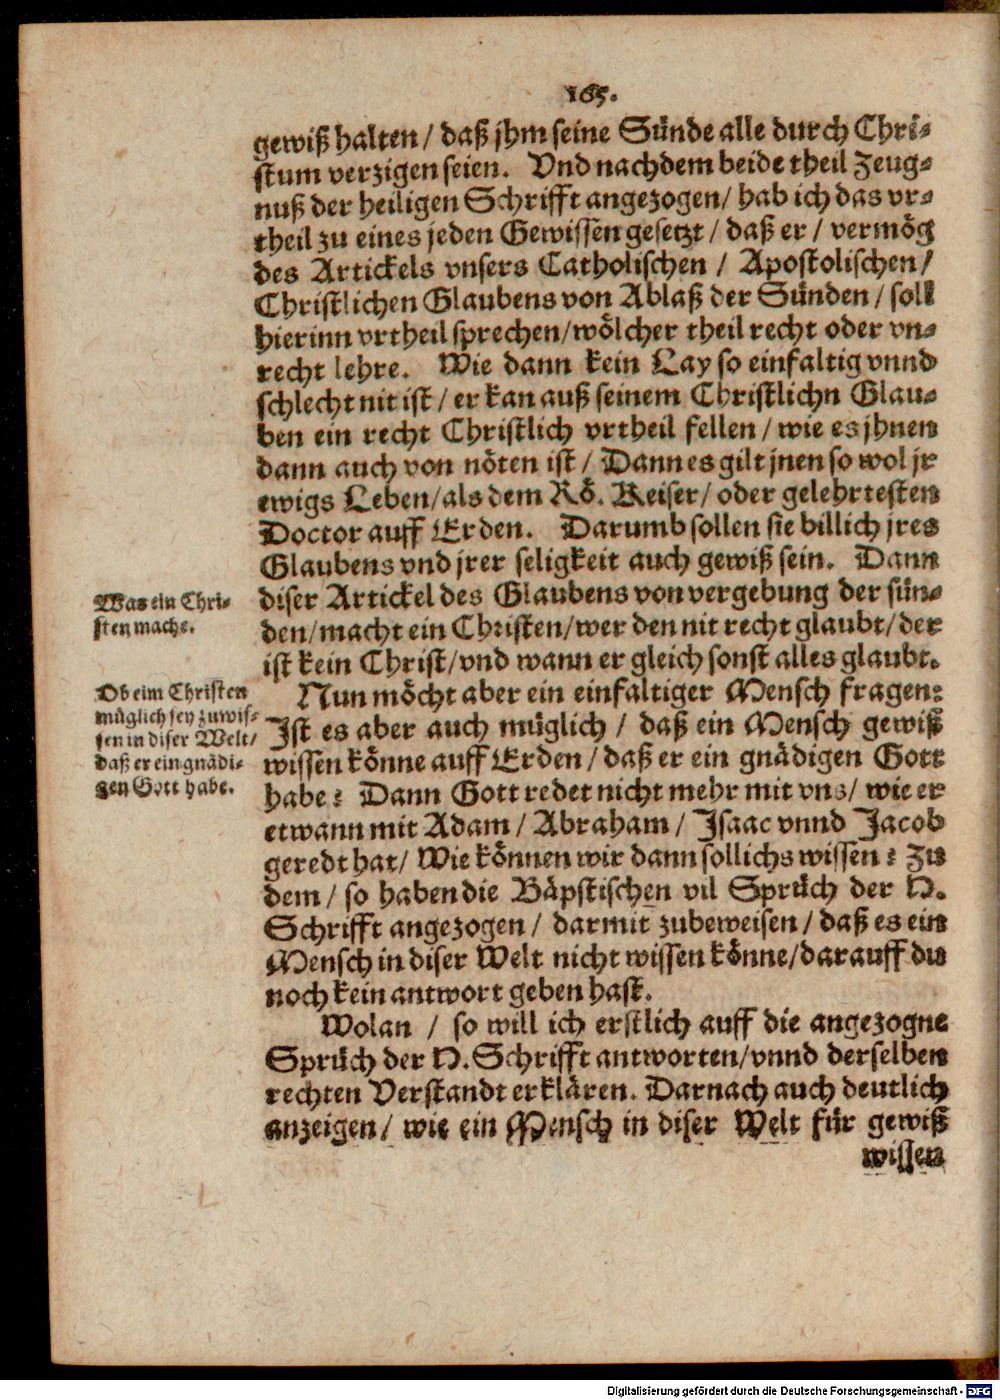 165.
gewiß halten / daß jhm seine Sünde alle durch Chri-
stum verzigen seien. Vnd nachdem beide theil Zeug-
nuß der heiligen Schrifft angezogen / hab ich das vr-
theil zu eines jeden Gewissen gesetzt / daß er / vermög
des Artickels vnsers Catholischen / Apostolischen /
Christlichen Glaubens von Ablaß der Sünden / soll
hierinn vrtheil sprechen / wölcher theil recht oder vn-
recht lehre. Wie dann kein Lay so einfaltig vnnd
schlecht nit ist / er kan auß seinem Christlichn Glau-
ben ein recht Christlich vrtheil fellen / wie es jhnen
dann auch von nöten ist / Dann es gilt jnen so wol jr
ewigs Leben / als dem Rö. Keiser / oder gelehrtesten
Doctor auff Erden. Darumb sollen sie billich jres
Glaubens vnd jrer seligkeit auch gewiß sein. Dann
Was ein Chri-
sten mache.
diser Artickel des Glaubens von vergebung der sün-
den / macht ein Christen / wer den nit recht glaubt / der
ist kein Christ / vnd wann er gleich sonst alles glaubt.
Ob eim Christen
müglich sey zuwis-
sen in diser Welt /
daß er ein gnädi-
gen Gott habe.
Nun möcht aber ein einfaltiger Mensch fragen:
Ist es aber auch müglich / daß ein Mensch gewiß
wissen könne auff Erden / daß er ein gnädigen Gott
habe? Dann Gott redet nicht mehr mit vns / wie er
etwann mit Adam / Abraham / Isaac vnnd Jacob
geredt hat / Wie können wir dann sollichs wissen? Zu
dem / so haben die Bäpstischen vil Sprüch der H.
Schrifft angezogen / darmit zubeweisen / daß es ein
Mensch in diser Welt nicht wissen könne / darauff du
noch kein antwort geben hast.
Wolan / so will ich erstlich auff die angezogne
Sprüch der H. Schrifft antworten / vnnd derselben
rechten Verstandt erklären. Darnach auch deutlich
anzeigen / wie ein Mensch in diser Welt für gewiß
wissen
Digitalisierung gefördert durch die Deutsche Forschungsgemeinschaft - DFG